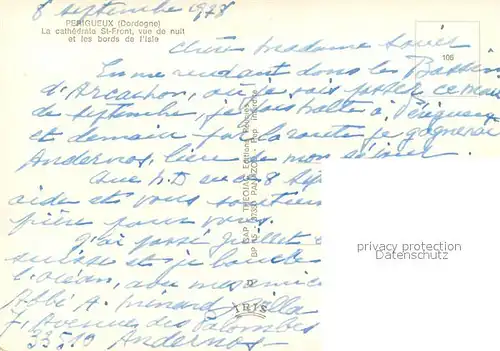 8 septembre 1978
PERIGUEUX (Dordogne)
La cathédrale St-Front, vue de nuit
et les bords de l'Isle
106
Chère Madame
En me rendant dans le Bassin
d'Arcachon, où je vais passer ce mois
de septembre, je fais halte à Périgueux
et demain par la route je gagnerai
Andernos, lieu de mon séjour.
Que N.D en ce 8 Sept
aide et vous soutienne
prie pour vous.
J'ai passé Juillet
suisse et je
l'océan, avec mes amis
Abbé A. Villa
7, Avenue des Palombes
33510 Andernos
GAP THEOJAC Editions
BP 15 - 87350 PANAZOL - Rep. interdite
IRIS
privacy protection
VDMARK